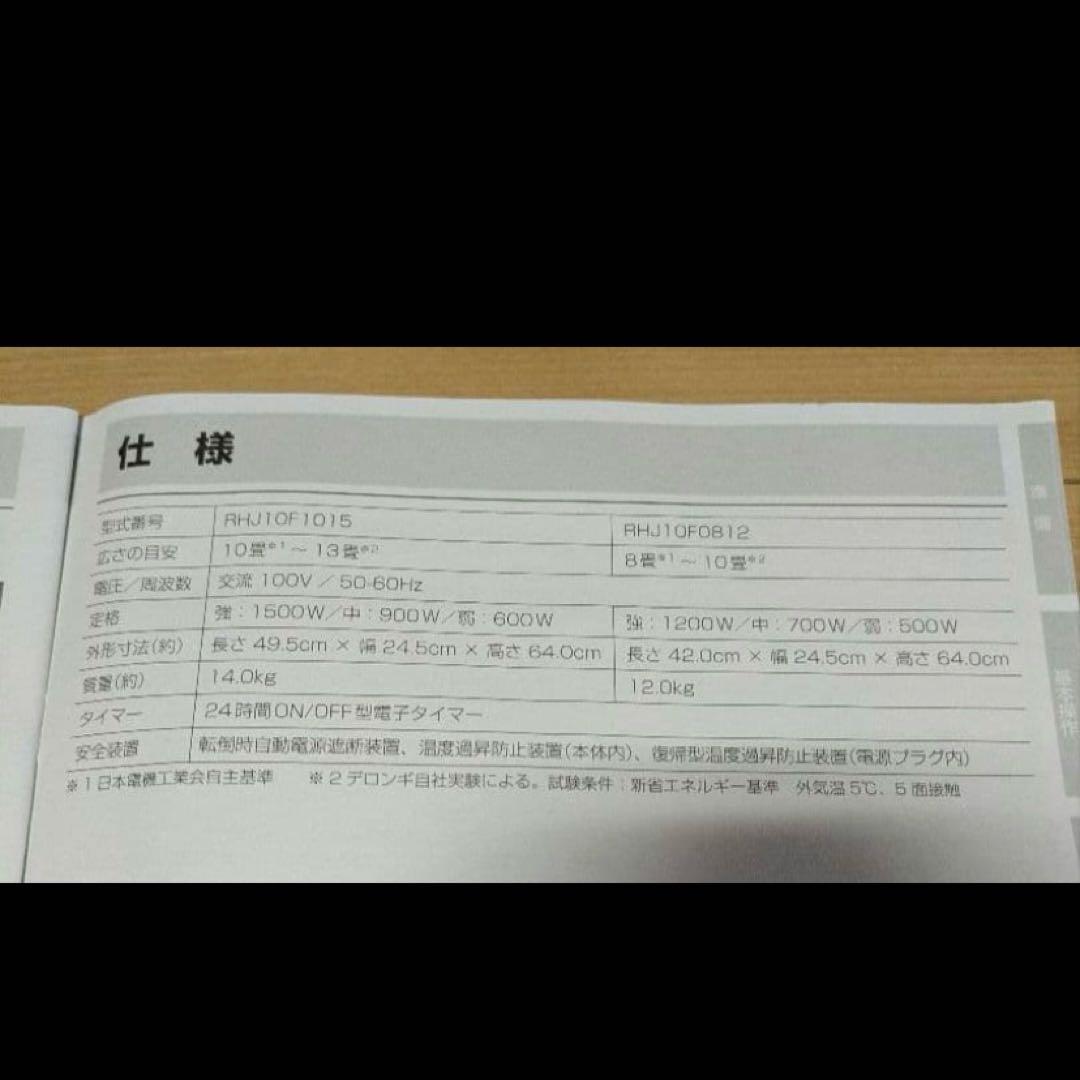 仕 様
型式番号 RHJ10F1015 RHJ10F0812
広さの目安 10畳※1～13畳※2 8畳※1～10畳※2
電圧／周波数 交流 100V／50-60Hz
定格 強：1500W／中：900W／弱：600W 強：1200W／中：700W／弱：500W
外形寸法(約) 長さ 49.5cm × 幅 24.5cm × 高さ 64.0cm 長さ 42.0cm × 幅 24.5cm × 高さ 64.0cm
質量(約) 14.0kg 12.0kg
タイマー 24時間ON/OFF型電子タイマー
安全装置 転倒時自動電源遮断装置、温度過昇防止装置(本体内)、復帰型温度過昇防止装置(電源プラグ内)
※1日本電機工業会自主基準 ※2デロンギ自社実験による。試験条件：新省エネルギー基準 外気温5℃、5面接触
準備
基本操作